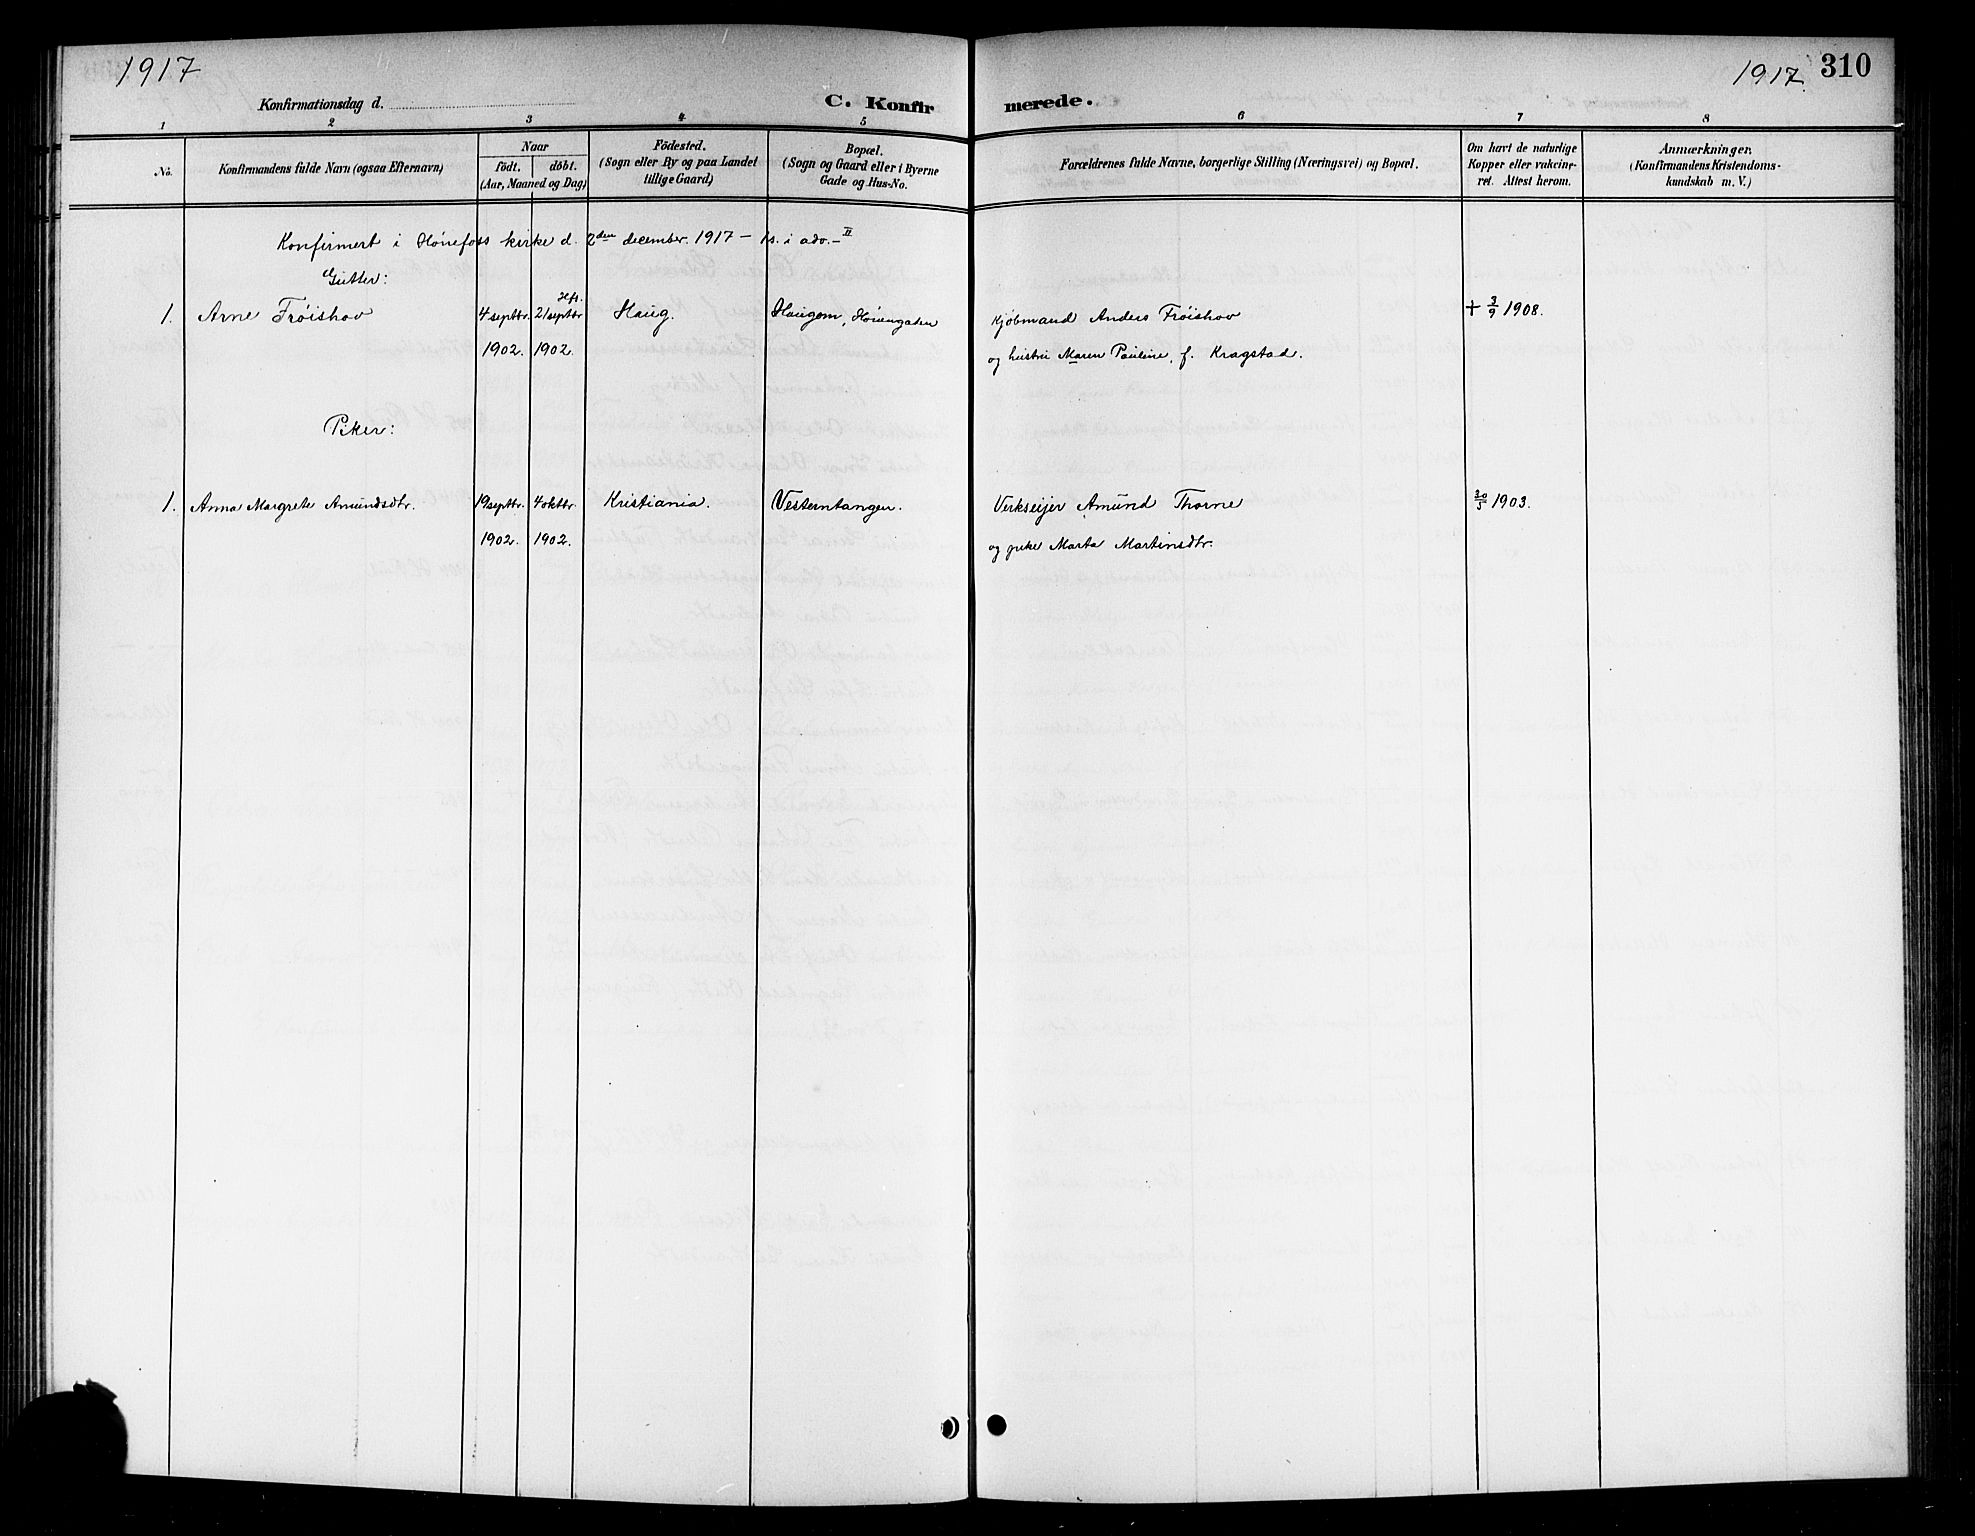 1917
1917.
310
Konfirmationsdag d.
C. Konfir
merede.
1
2
3
4
5
6
7
8
No.
Konfirmandens fulde Navn (ogsaa Efternavn)
Naar
født.
døbt.
(Aar, Maaned og Dag)
Fødested.
(Sogn eller By og paa Landet
tillige Gaard)
Bopæl.
(Sogn og Gaard eller i Byerne
Gade og Hus-No.
Forældrenes fulde Navne, borgerlige Stilling (Næringsvei) og Bopæl.
Om havt de naturlige
Kopper eller vakcine-
ret. Attest herom.
Anmærkninger.
(Konfirmandens Kristendoms-
kundskab m. V.)
Konfirmert i Hønefoss kirke d. 2den december. 1917 – 1s. i adv. – II
Gutter:
Hfs.
1. Arne Frøishov 4 septbr. 21 septbr Haug. Haugom, Hønengaten Kjøbmand Anders Frøishov + 3/9 1908.
1902. 1902. og hustru Maren Pauline, f. Kragstad.
Piker:
1. Anna Margrete Amundsdtr. 19 septbr. 4 oktbr. Kristiania. Vesterntangen. Verkseijer Amund Thorne 30/5 1903.
1902. 1902. og pike Marta Martinsdtr.